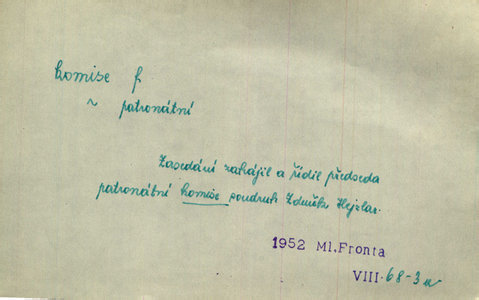 komise f
~ patronátní
Zasedání zahájil a řídil předseda
patronátní komise soudruh Zdeněk Hejzlar.
1952 Ml.Fronta
VIII.68-3